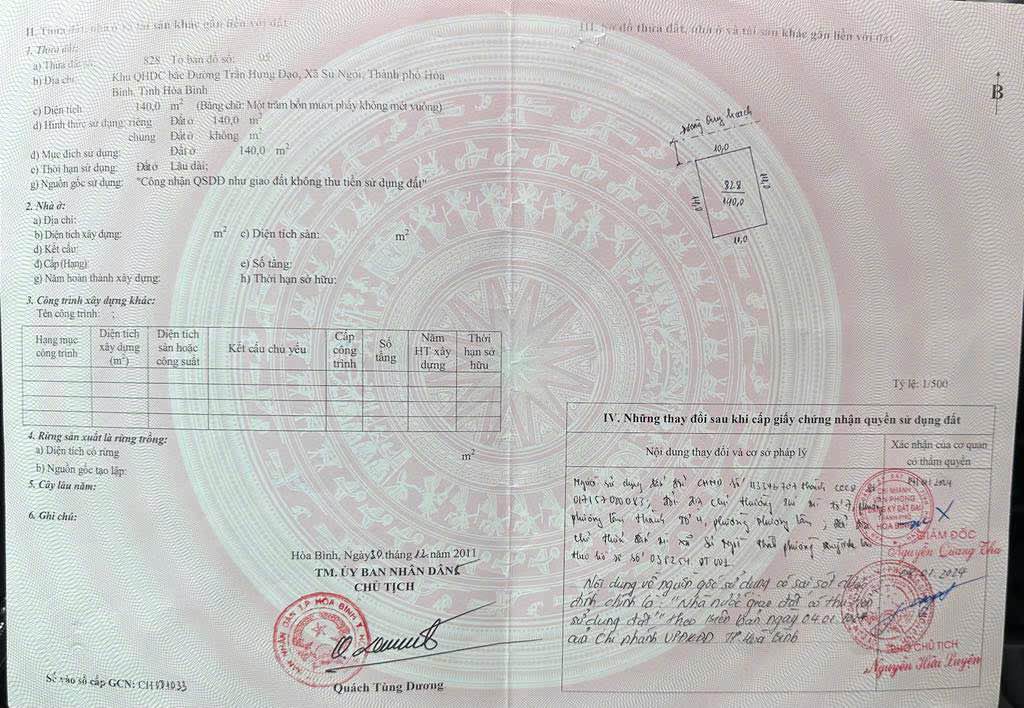 II. Thửa đất, nhà ở và tài sản khác gắn liền với đất
1. Thửa đất:
a) Thửa đất số: 828 Tờ bản đồ số: 05
b) Địa chỉ: Khu QHDC bắc Đường Trần Hưng Đạo, Xã Sủ Ngòi, Thành phố Hòa
Bình, Tỉnh Hòa Bình
c) Diện tích 140,0 m² (Bằng chữ: Một trăm bốn mươi phẩy không mét vuông)
d) Hình thức sử dụng: riêng Đất ở 140,0 m²
chung Đất ở không m²
đ) Mục đích sử dụng: Đất ở 140,0 m²
e) Thời hạn sử dụng: Đất ở Lâu dài;
g) Nguồn gốc sử dụng: "Công nhận QSDĐ như giao đất không thu tiền sử dụng đất"
2. Nhà ở:
a) Địa chỉ:
b) Diện tích xây dựng: m² c) Diện tích sàn: m²
d) Kết cấu:
đ) Cấp (Hạng): e) Số tầng:
g) Năm hoàn thành xây dựng: h) Thời hạn sở hữu:
3. Công trình xây dựng khác:
Tên công trình: ;
Hạng mục công trình
Diện tích xây dựng (m²)
Diện tích sàn hoặc công suất
Kết cấu chủ yếu
Cấp công trình
Số tầng
Năm HT xây dựng
Thời hạn sở hữu
4. Rừng sản xuất là rừng trồng:
a) Diện tích có rừng m²
b) Nguồn gốc tạo lập:
5. Cây lâu năm:
6. Ghi chú:
Hòa Bình, Ngày 30 tháng 12 năm 2011
TM. ỦY BAN NHÂN DÂN
CHỦ TỊCH
Quách Tùng Dương
Số vào sổ cấp GCN: CH
III. Sơ đồ thửa đất, nhà ở và tài sản khác gắn liền với đất
B
Đường Quy hoạch
10,0
828
140,0
14,0
14,0
Tỷ lệ: 1/500
IV. Những thay đổi sau khi cấp giấy chứng nhận quyền sử dụng đất
Nội dung thay đổi và cơ sở pháp lý
Xác nhận của cơ quan
có thẩm quyền
Người sử dụng đất đổi CMND số 113346707 thành CCCD số
phường
phường Tân Thành tổ 4, phường Phương Lâm ;
theo hồ sơ số
Nội dung về nguồn gốc sử dụng có sai sót được
đính chính là: "Nhà nước giao đất có thu tiền
sử dụng đất" theo Biên bản ngày 04.01.2024
của Chi nhánh VPĐKĐĐ TP Hoà Bình
GIÁM ĐỐC
Nguyễn Quang Thu
PHÓ CHỦ TỊCH
Nguyễn Hữu Luyên